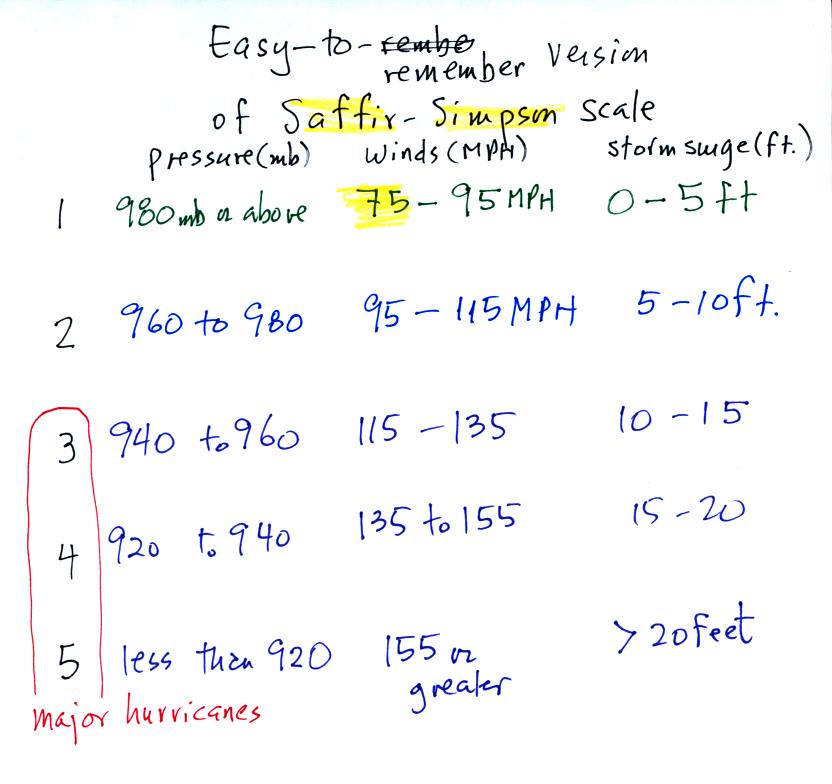 Easy-to-rembe remember version
of Saffir-Simpson scale
pressure(mb) winds(MPH) storm surge(ft.)
1 980mb or above 75-95MPH 0-5ft
2 960 to 980 95-115MPH 5-10ft.
3 940 to 960 115-135 10-15
4 920 to 940 135 to 155 15-20
5 less than 920 155 or greater >20feet
major hurricanes